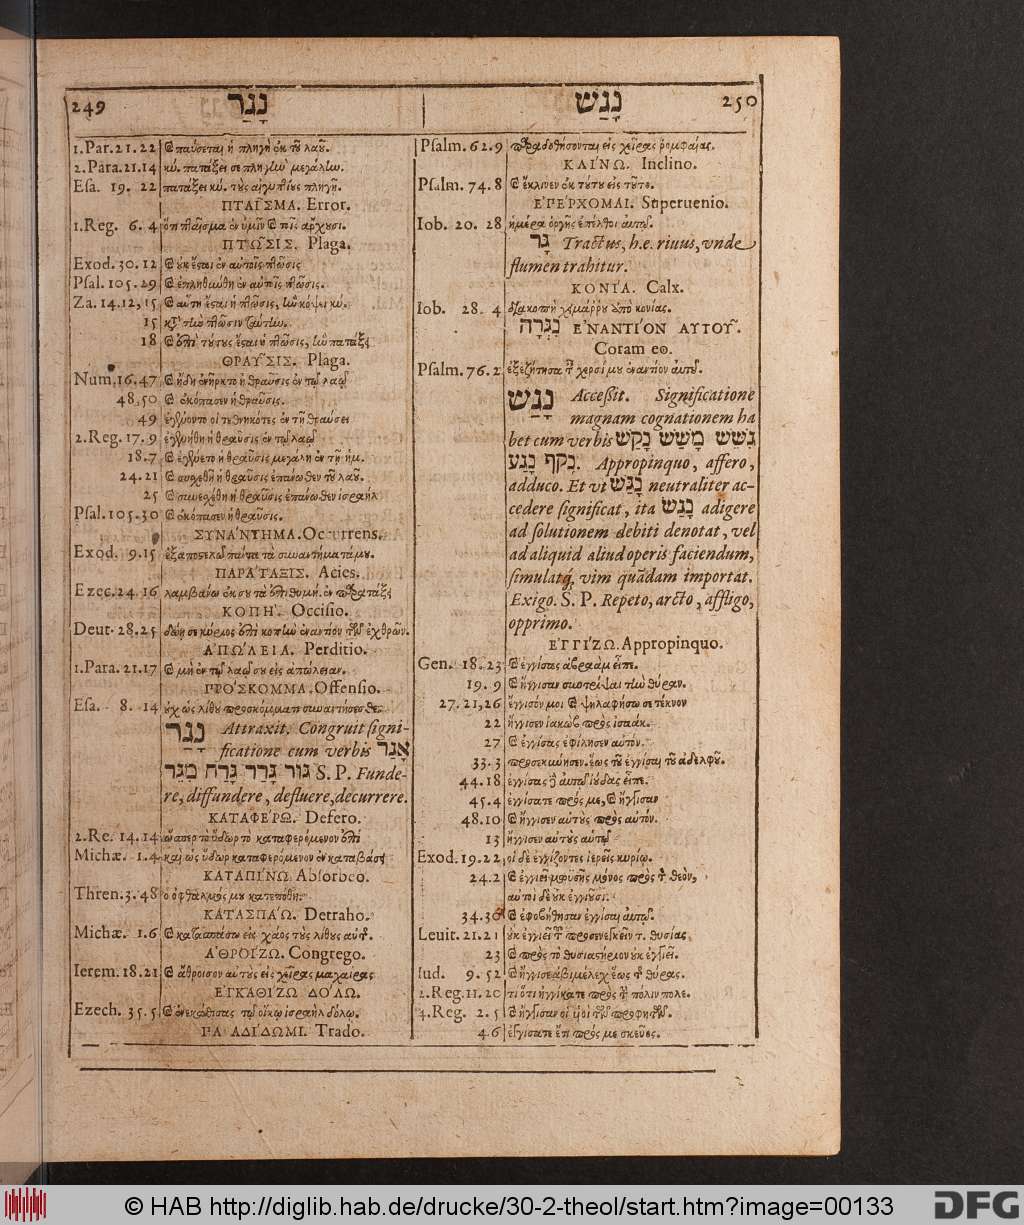 249 נָגַר נָגַשׁ 250
1.Par.21.22 παύσεται ἡ πληγὴ ἐκ τοῦ λαοῦ.
2.Para.21.14 κύ. πατάξει σε πληγὴν μεγάλην.
Esa. 19. 22 πατάξει κύ. τοὺς αἰγυπτίους πληγῇ.
ΠΤΑΙ͂ΣΜΑ. Error.
1.Reg. 6. 4 ὅτι πταῖσμα ἐν ὑμῖν
ΠΤΩ͂ΣΙΣ. Plaga.
Exod. 30. 12 οὐκ ἔσται ἐν αὐτοῖς πτῶσις
Psal. 105. 29 ἐπληθύνθη ἐν αὐτοῖς πτῶσις.
Za. 14. 12, 15 αὕτη ἔσται ἡ πτῶσις, ἣν κόψει κύ.
15 τὴν πτῶσιν ταύτην.
18 ἐπὶ τούτους ἔσται ἡ πτῶσις, ἣν πατάξει
ΘΡΑΥ͂ΣΙΣ. Plaga.
Num. 16. 47 ἤδη ἐνῆρκτο ἡ θραῦσις ἐν τῷ λαῷ
48, 50 ἐκόπασεν ἡ θραῦσις.
49 ἐγένοντο οἱ τεθνηκότες ἐν τῇ θραύσει
2.Reg. 17. 9 ἐγενήθη ἡ θραῦσις ἐν τῷ λαῷ
18. 7 ἐγένετο ἡ θραῦσις μεγάλη ἐν τῇ ἡμ.
24. 21 συσχεθῇ ἡ θραῦσις ἐπάνωθεν τοῦ λαοῦ.
25 συνεσχέθη ἡ θραῦσις ἐπάνωθεν ἰσραήλ
Psal. 105. 30 ἐκόπασεν ἡ θραῦσις.
ΣΥΝΑ΄ΝΤΗΜΑ. Occurrens.
Exod. 9. 15 ἐξαποστελῶ πάντα τὰ συναντήματά μου.
ΠΑΡΑ΄ΤΑΞΙΣ. Acies.
Ezec. 24. 16 λαμβάνω ἐκ σοῦ τὰ ἐπιθυμή. ἐν παρατάξει
ΚΟΠΗ΄. Occisio.
Deut. 28. 25 δῴη σε κύριος ἐπὶ κοπὴν ἐναντίον τῶν ἐχθρῶν.
ΑΠΩ΄ΛΕΙΑ. Perditio.
1.Para. 21. 17 μὴ ἐν τῷ λαῷ σου εἰς ἀπώλειαν.
ΠΡΟ΄ΣΚΟΜΜΑ. Offensio.
Esa. 8. 14 οὐχ ὡς λίθου προσκόμματι συναντήσεσθε.
נָגַר Attraxit. Congruit signi-
ficatione cum verbis אָגַר
גּוּר גָּרַר גָּרַח מִגֵּר S. P. Funde-
re, diffundere, defluere, decurrere.
ΚΑΤΑΦΕ΄ΡΩ. Defero.
2. Re. 14. 14 ὥσπερ τὸ ὕδωρ τὸ καταφερόμενον ἐπὶ
Michæ. 1. 4 καὶ ὡς ὕδωρ καταφερόμενον ἐν καταβάσει
ΚΑΤΑΠΙ΄ΝΩ. Absorbeo.
Thren. 3. 48 ὁ ὀφθαλμός μου κατεπόθη.
ΚΑΤΑΣΠΑ΄Ω. Detraho.
Michæ. 1. 6 κατασπάσω εἰς χάος τοὺς λίθους αὐτῆς.
ἈΘΡΟΙ΄ΖΩ. Congrego.
Ierem. 18. 21 ἄθροισον αὐτοὺς εἰς χεῖρας μαχαίρας
ΕΓΚΑΘΙ΄ΖΩ ΔΟ΄ΛΩ.
Ezech. 35. 5 ἐνεκάθισας τῷ οἴκῳ ἰσραὴλ δόλῳ.
ΠΑΡΑΔΙ΄ΔΩΜΙ. Trado.
Psalm. 62. 9 παραδοθήσονται εἰς χεῖρας ῥομφαίας.
ΚΛΙ΄ΝΩ. Inclino.
Psalm. 74. 8 ἔκλινεν ἐκ τούτου εἰς τοῦτο.
ἘΠΕ΄ΡΧΟΜΑΙ. Superuenio.
Iob. 20. 28 ἡμέρα ὀργῆς ἐπέλθοι αὐτῷ.
גָּר Tractus, h.e. riuus, vnde
flumen trahitur.
ΚΟΝΙ΄Α. Calx.
Iob. 28. 4 διακοπὴ χειμάρρου ἀπὸ κονίας.
נִגְּרָה ἘΝΑΝΤΙ΄ΟΝ ΑΥΤΟΥ͂.
Coram eo.
Psalm. 76. 2 ἐξεζήτησα τ χερσί μου ἐναντίον αὐτοῦ.
נָגַשׁ Accessit. Significatione
magnam cognationem ha
bet cum verbis גִּשֵּׁשׁ מָשַׁשׁ נָקַשׁ
נָקַף נָגַע. Appropinquo, affero,
adduco. Et vt נָגַשׁ neutraliter ac-
cedere significat, ita נָגַשׂ adigere
ad solutionem debiti denotat, vel
ad aliquid aliud operis faciendum,
simulatq́; vim quãdam importat.
Exigo. S. P. Repeto, arcto, affligo,
opprimo.
ἘΓΓΙ΄ΖΩ. Appropinquo.
Gen. 18. 23 ἐγγίσας ἀβραὰμ εἶπε.
19. 9 ἤγγισαν συντρίψαι τὴν θύραν.
27. 21, 26 ἔγγισόν μοι ψηλαφήσω σε τέκνον
22 ἤγγισεν ἰακὼβ πρὸς ἰσαάκ.
27 ἐγγίσας ἐφίλησεν αὐτόν.
33. 3 προσεκύνησεν. ἕως τοῦ ἐγγίσαι τοῦ ἀδελφοῦ.
44. 18 ἐγγίσας δὲ αὐτῷ ἰούδας εἶπε.
45. 4 ἐγγίσατε πρός με, ἤγγισαν
48. 10 ἤγγισεν αὐτοὺς πρὸς αὐτόν.
13 ἤγγισεν αὐτοὺς αὐτῷ
Exod. 19. 22 οἱ δὲ ἐγγίζοντες ἱερεῖς κυρίῳ.
24. 2 ἐγγιεῖ μωυσῆς μόνος πρὸς τ θεὸν,
αὐτοὶ δὲ οὐκ ἐγγιοῦσι.
34. 30 ἐφοβήθησαν ἐγγίσαι αὐτῷ.
Leuit. 21. 21 οὐκ ἐγγιεῖ τ προσενεγκεῖν τ. θυσίας
23 πρὸς τὸ θυσιαστήριον οὐκ ἐγγιεῖ.
Iud. 9. 52 ἤγγισε ἀβιμέλεχ ἕως τ θύρας.
2. Reg. 11. 20 τί ὅτι ἠγγίσατε πρὸς τ πόλιν πολε.
4. Reg. 2. 5 ἤγγισαν οἱ υἱοὶ τῶν προφητῶν.
4. 6 ἐγγίσατε ἔτι πρός με σκεῦος.
© HAB http://diglib.hab.de/drucke/30-2-theol/start.htm?image=00133 DFG